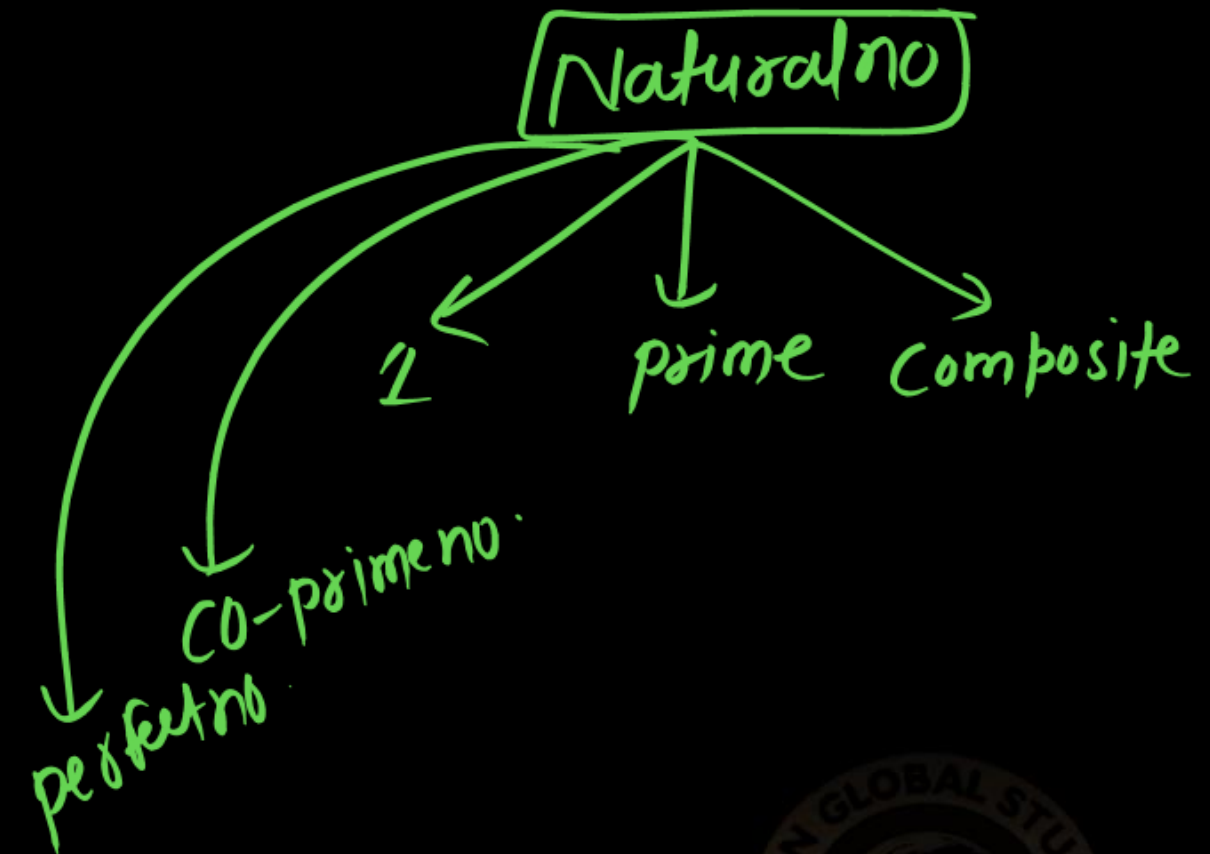 Natural no
1
prime
composite
CO-prime no.
perfect no.
N GLOBAL STU